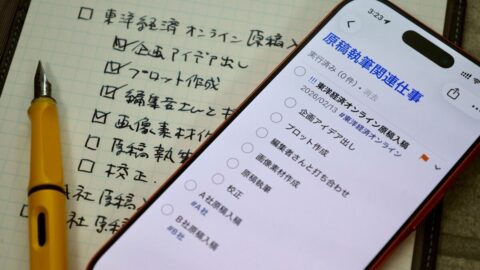 東洋経済オンライン原稿入
企画アイデア出し
プロット作成
編集者さんと打
画像素材作
原稿執筆
校正
社原稿入
社原稿
3:23
原稿執筆関連仕事
実行済み(0件)・消去
!!! 東洋経済オンライン原稿入稿
2026/02/13 #東洋経済オンライン
企画アイデア出し
プロット作成
編集者さんと打ち合わせ
画像素材作成
原稿執筆
校正
A社原稿入稿
#A社
B社原稿入稿
#B社